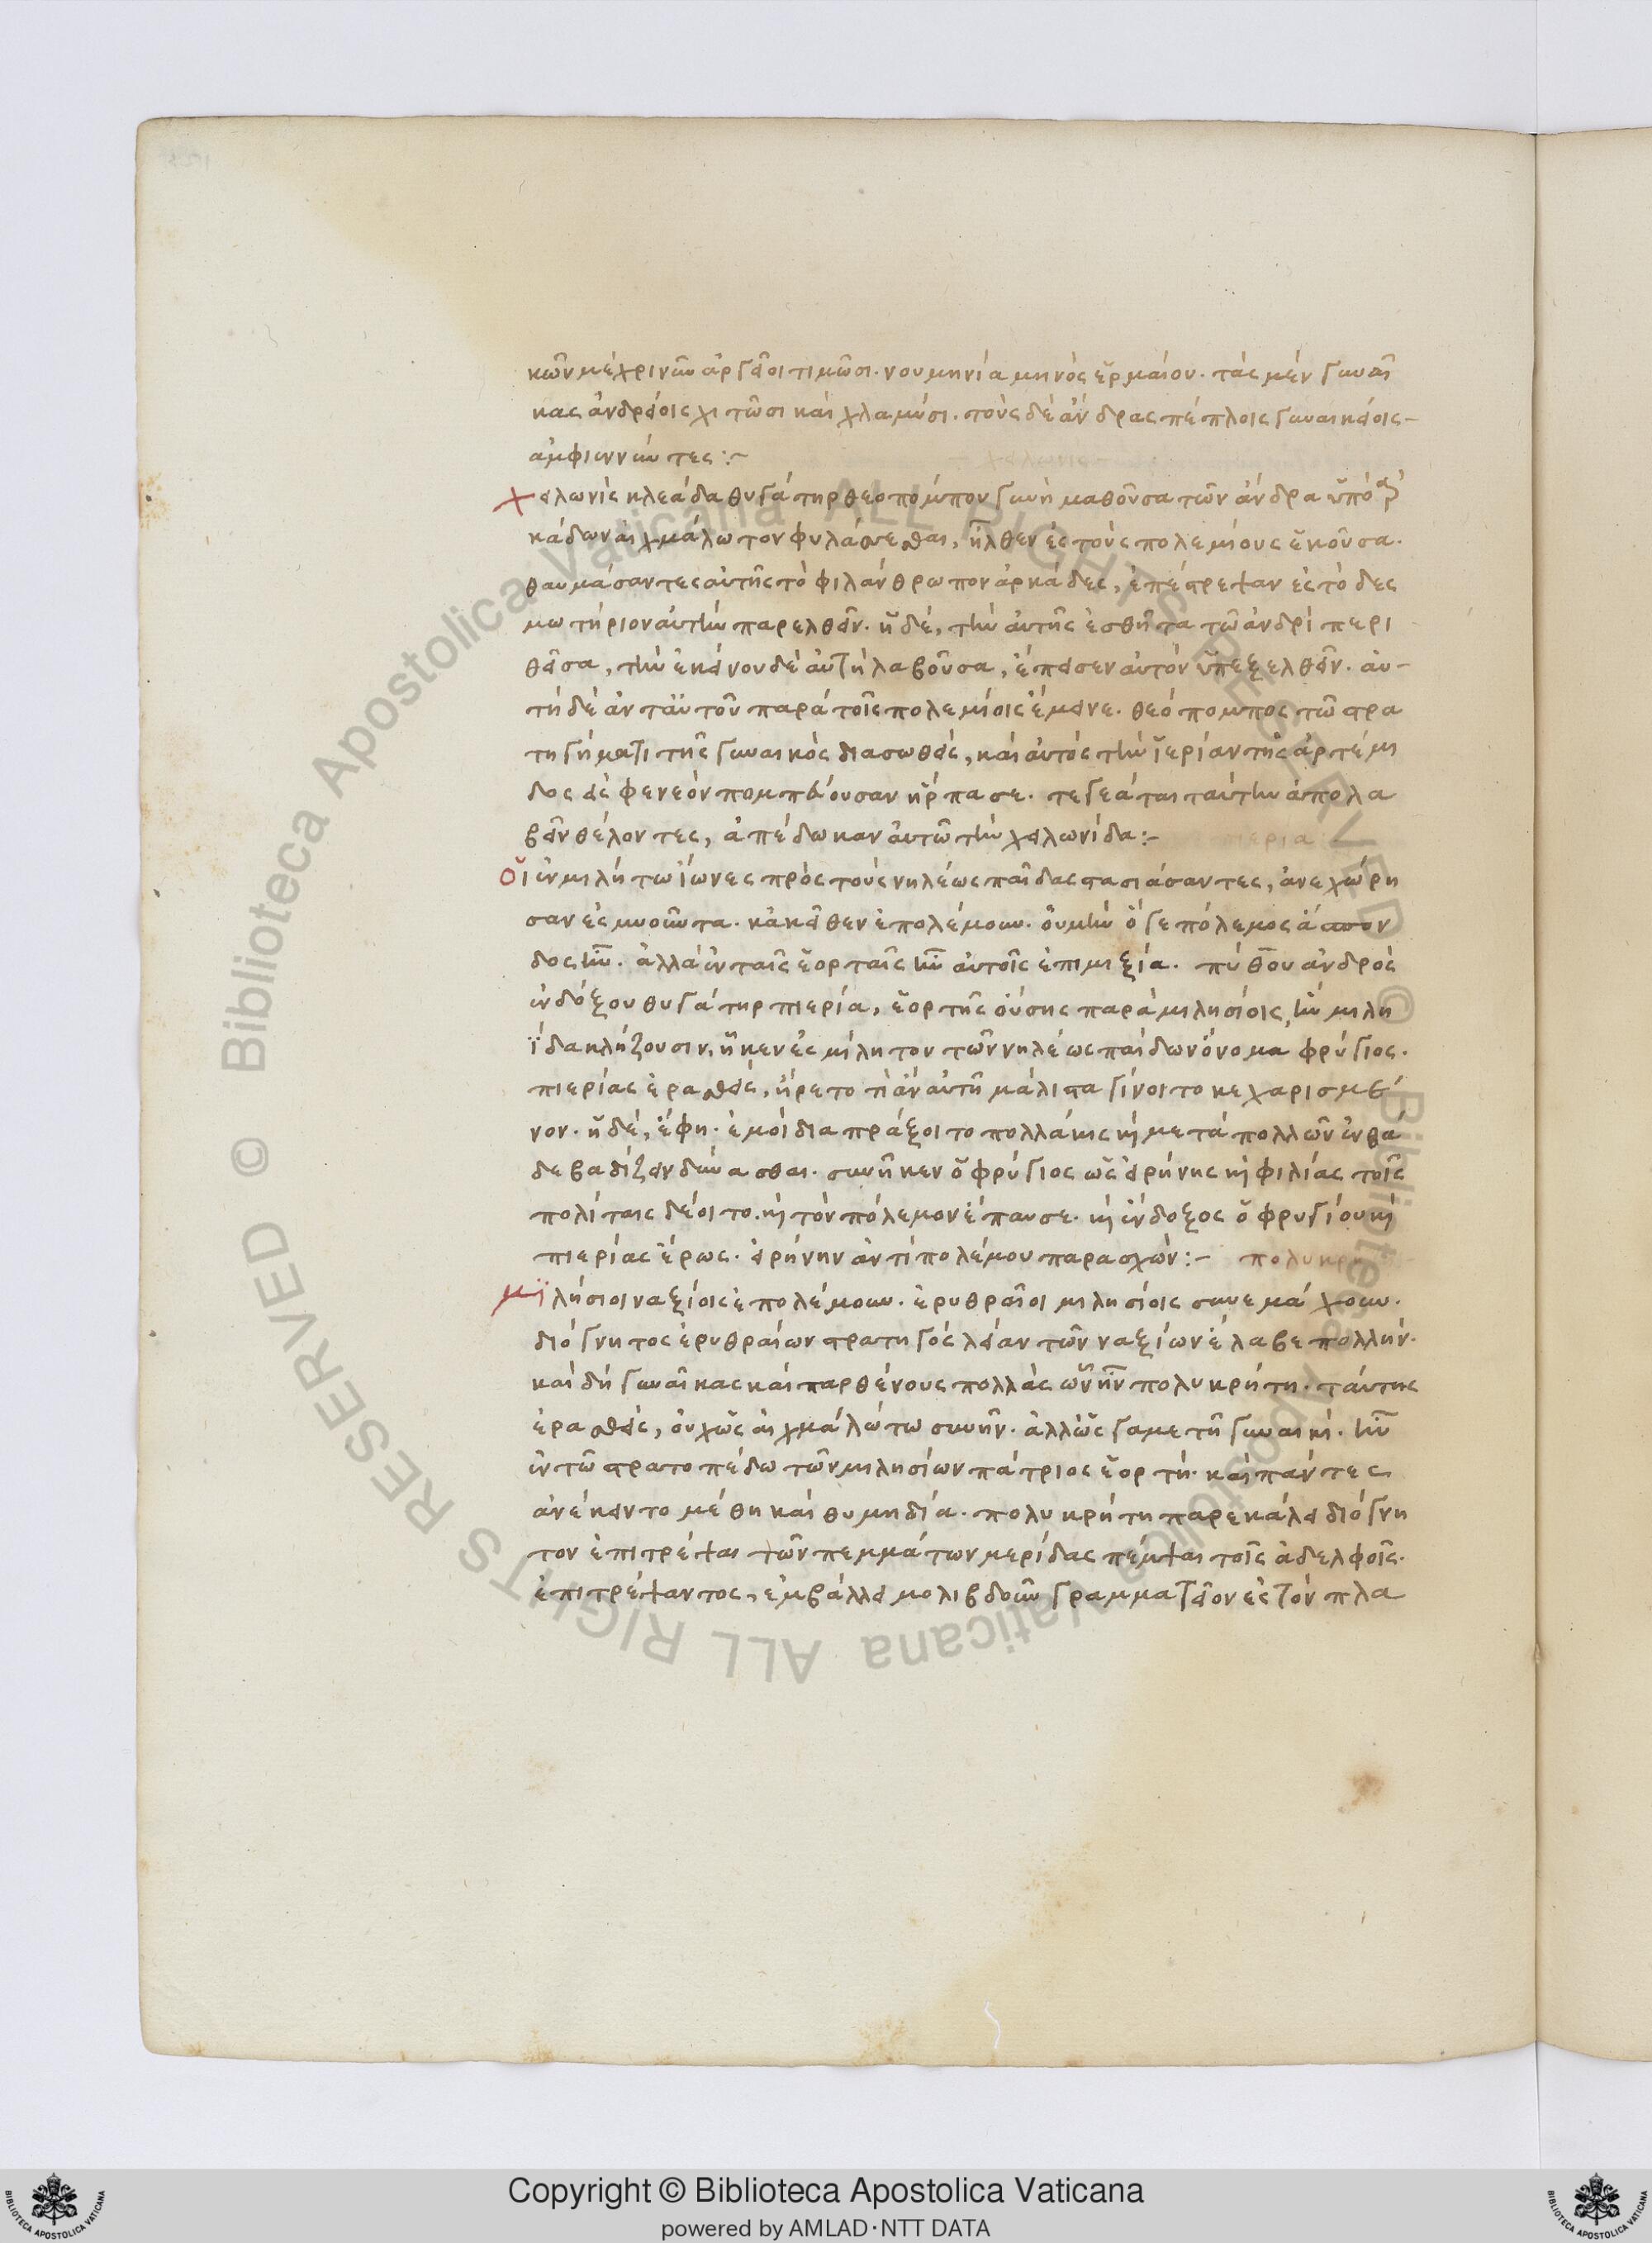 κῶν μέχρι νῦν ἀργεῖοι τιμῶσι. νουμηνία μηνὸς ἑρμαίου. τὰς μὲν γυναῖ
κας ἀνδρείοις χιτῶσι καὶ χλαμύσι. τοὺς δὲ ἄνδρας πέπλοις γυναικείοις –
ἀμφιεννύντες :–
χειλωνὶς κλεάδα θυγάτηρ θεοπόμπου γυνὴ μαθοῦσα τὸν ἄνδρα ὑπὸ ἀρ
κάδων αἰχμάλωτον φυλάττεσθαι, ἦλθεν ἐς τοὺς πολεμίους ἑκοῦσα.
θαυμάσαντες αὐτῆς τὸ φιλάνθρωπον ἀρκάδες, ἐπέτρεψαν ἐς τὸ δες
μωτήριον αὐτὴν παρελθεῖν. ἡ δὲ, τὴν αὐτῆς ἐσθῆτα τῷ ἀνδρὶ περι
θεῖσα, τὴν ἐκείνου δὲ αὐτὴ λαβοῦσα, ἔπεισεν αὐτὸν ὑπεξελθεῖν. αὐ–
τὴ δὲ ἀντ' αὐτοῦ παρὰ τοῖς πολεμίοις ἔμεινε. θεόπομπος τῷ στρα
τηγήματι τῆς γυναικὸς διασωθεὶς, καὶ αὐτὸς τὴν ἱερίαν τῆς ἀρτέμι
δος εἰς φενεὸν πομπεύουσαν ἥρπασε. τεγεάται ταύτην ἀπολα
βεῖν θέλοντες, ἀπέδωκαν αὐτῷ τὴν χειλωνίδα :– πιερία
οἱ ἐν μιλήτῳ ἴωνες πρὸς τοὺς νηλέως παῖδας στασιάσαντες, ἀνεχώρη
σαν ἐς μυοῦντα. κἀκεῖθεν ἐπολέμουν. οὐ μὴν ὅ γε πόλεμος ἄσπον
δος ἦν. ἀλλὰ ἐν ταῖς ἑορταῖς ἦν αὐτοῖς ἐπιμιξία. πύθου ἀνδρὸς
ἐνδόξου θυγάτηρ πιερία, ἑορτῆς οὔσης παρὰ μιλησίοις, ἣν μιλη
ΐδα κλήζουσιν, ἧκεν ἐς μίλητον τῶν νηλέως παίδων ὄνομα φρύγιος.
πιερίας ἐρασθεὶς, ἤρετο τί ἂν αὐτῇ μάλιστα γίνοιτο κεχαρισμέ
νον. ἡ δὲ, ἔφη. ἐμοὶ διαπράξοιτο πολλάκις καὶ μετὰ πολλῶν ἐνθά
δε βαδίζειν δύνασθαι. συνῆκεν ὁ φρύγιος ὡς εἰρήνης καὶ φιλίας τοῖς
πολίταις δέοιτο. καὶ τὸν πόλεμον ἔπαυσε. καὶ ἔνδοξος ὁ φρυγίου καὶ
πιερίας ἔρως. εἰρήνην ἀντὶ πολέμου παρασχών :– πολυκρη
μιλήσιοι ναξίοις ἐπολέμουν. ἐρυθραῖοι μιλησίοις συνεμάχουν.
διόγνητος ἐρυθραίων στρατηγὸς λείαν τῶν ναξίων ἔλαβε πολλήν.
καὶ δὴ γυναῖκας καὶ παρθένους πολλὰς ὧν ἦν πολυκρήτη. ταύτης
ἐρασθεὶς, οὐχ ὡς αἰχμαλώτῳ συνῆν. ἀλλ' ὡς γαμετῇ γυναικί. ἦν
ἐν τῷ στρατοπέδῳ τῶν μιλησίων πάτριος ἑορτή. καὶ πάντες
ἀνέκειντο μέθη καὶ θυμηδία. πολυκρήτη παρεκάλει διόγνη
τον ἐπιτρέψαι τῶν πεμμάτων μερίδας πέμψαι τοῖς ἀδελφοῖς.
ἐπιτρέψαντος, ἐμβάλλει μολιβδοῦν γραμματεῖον ἐς τὸν πλα
Copyright © Biblioteca Apostolica Vaticana
powered by AMLAD·NTT DATA
© Biblioteca Apostolica Vaticana ALL RIGHTS RESERVED © Biblioteca Apostolica Vaticana ALL RIGHTS RESERVED